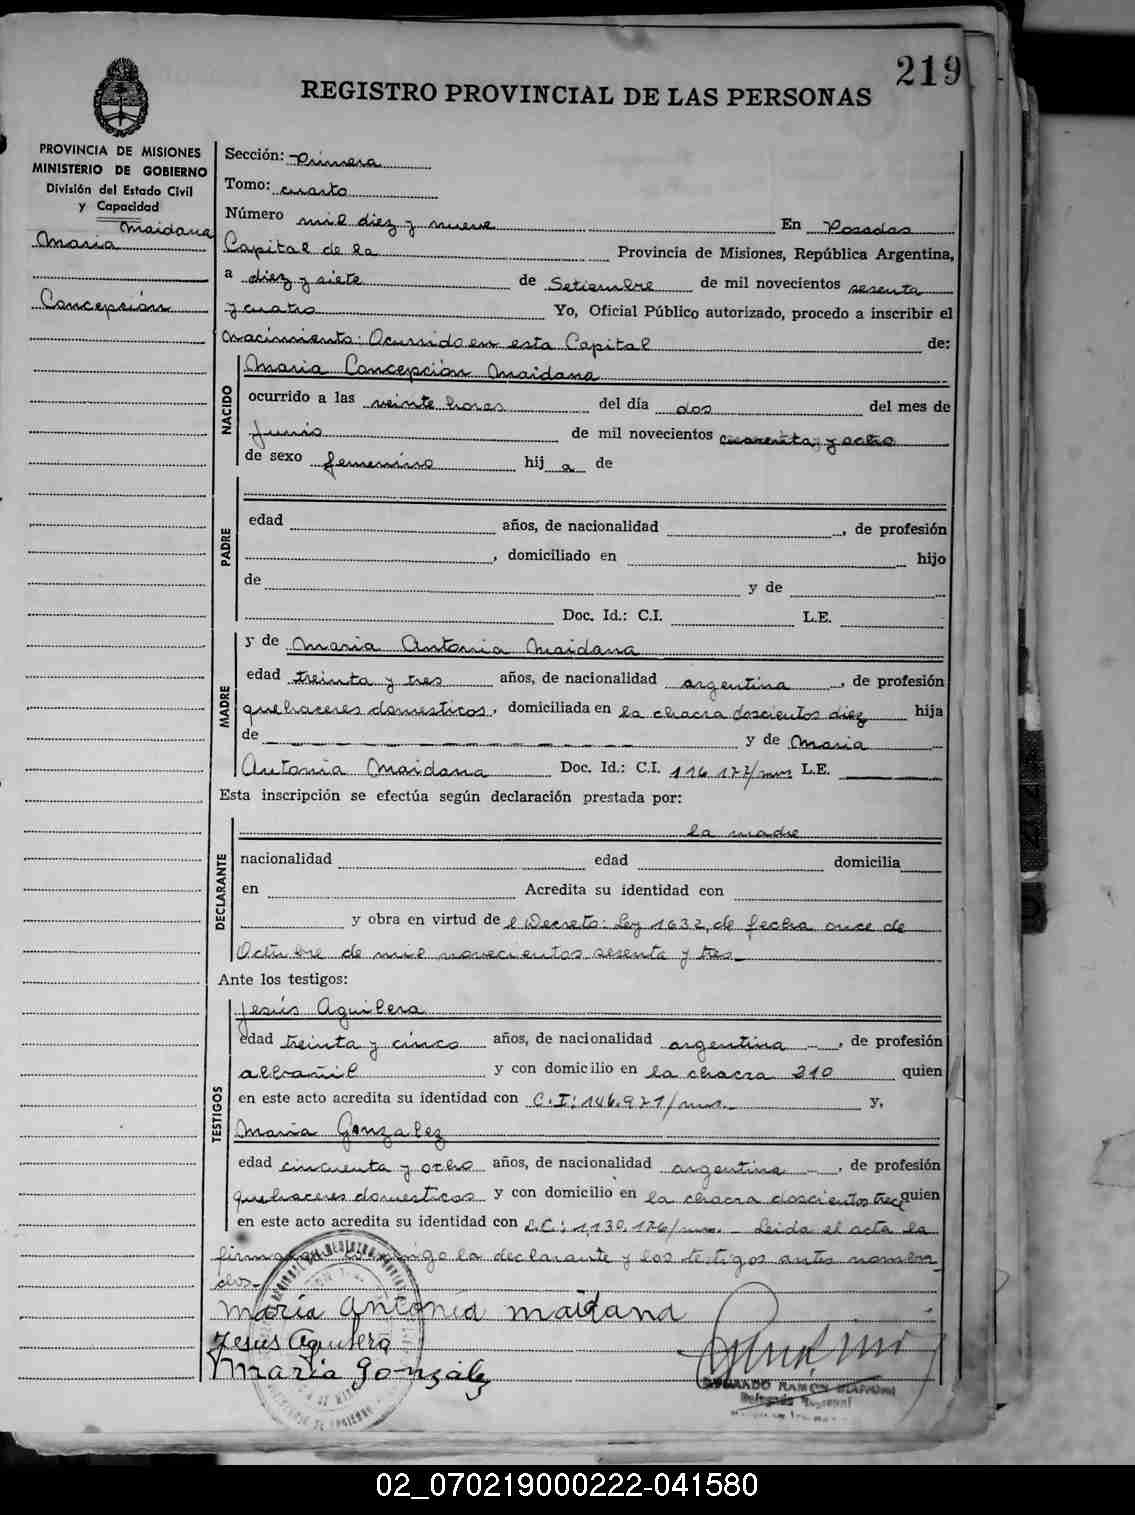 219
REGISTRO PROVINCIAL DE LAS PERSONAS
PROVINCIA DE MISIONES
MINISTERIO DE GOBIERNO
División del Estado Civil
y Capacidad
Maidana
Maria
Concepción
Sección: Primera
Tomo: cuarto
Número mil diez y nueve En Posadas
Capital de la Provincia de Misiones, República Argentina,
a diez y siete de Setiembre de mil novecientos sesenta
y cuatro Yo, Oficial Público autorizado, procedo a inscribir el
nacimiento: Ocurrido en esta Capital de:
NACIDO
Maria Concepción Maidana
ocurrido a las veinte horas del día dos del mes de
Junio de mil novecientos cuarenta y ocho
de sexo femenino hij a de
PADRE
edad años, de nacionalidad , de profesión
, domiciliado en hijo
de y de
Doc. Id.: C.I. L.E.
MADRE
y de Maria Antonia Maidana
edad treinta y tres años, de nacionalidad argentina , de profesión
quehaceres domesticos, domiciliada en la chacra doscientos diez hija
de y de Maria
Antonia Maidana Doc. Id.: C.I. 116.177/mns L.E.
Esta inscripción se efectúa según declaración prestada por:
DECLARANTE
la madre
nacionalidad edad domicilia
en Acredita su identidad con
y obra en virtud de l Decreto: Ley 1632, de fecha once de
Octubre de mil novecientos sesenta y tres
Ante los testigos:
TESTIGOS
Jesús Aguilera
edad treinta y cinco años, de nacionalidad argentina , de profesión
albañil y con domicilio en la chacra 210 quien
en este acto acredita su identidad con C.I: 146.971/mns. y,
Maria Gonzalez
edad cincuenta y ocho años, de nacionalidad argentina , de profesión
quehaceres domesticos y con domicilio en la chacra doscientos trece quien
en este acto acredita su identidad con L.C.: 1,130.176/mns. Leida el acta la
firman conmigo la declarante y los testigos antes nombra-
dos.
maría antonia maidana
Jesus Aguilera
Maria gonzález
RAMÓN
Delegado
02_070219000222-041580